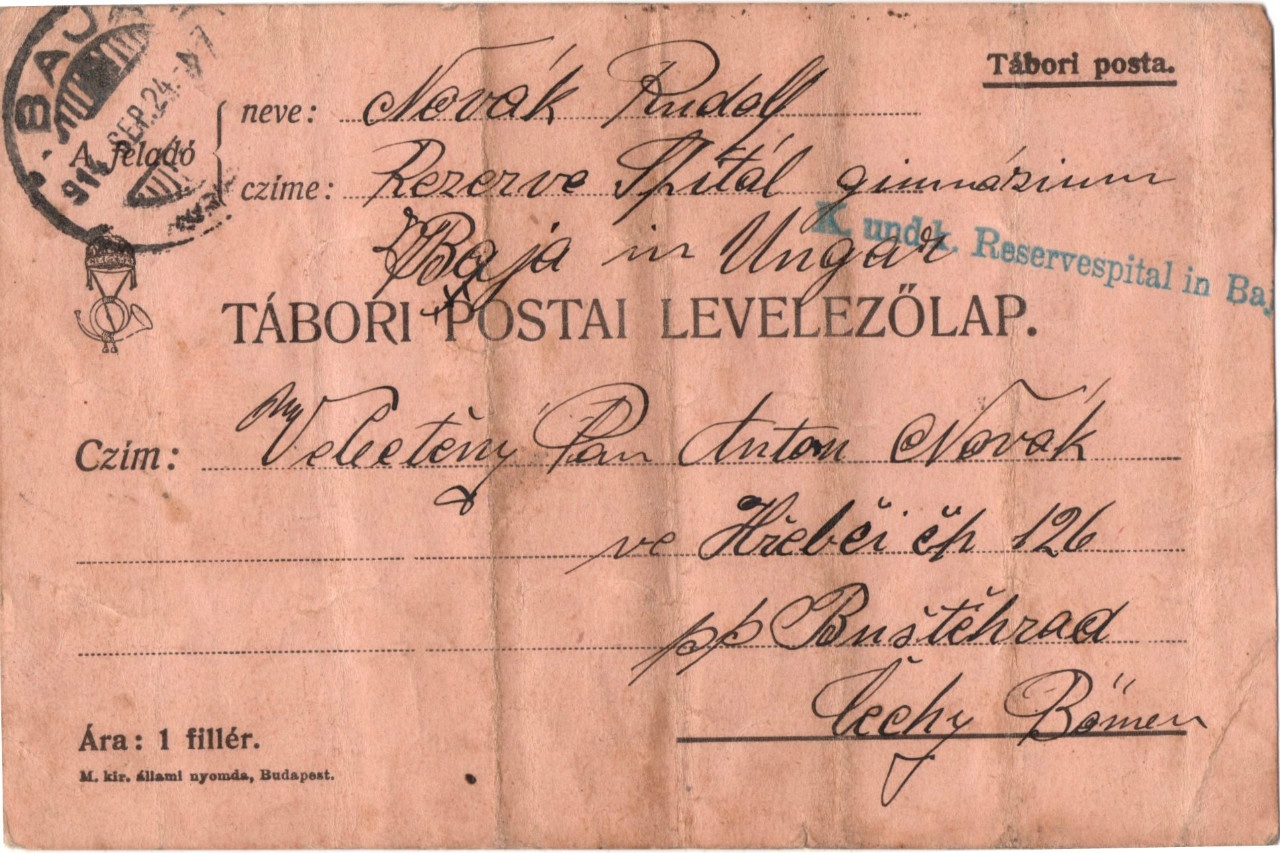 BAJA
914 SEP. 24.
Tábori posta.
A feladó
neve: Novák Rudolf
czíme: Rezerve Spitál gimnázium
Baja in Ungar
K. und k. Reservespital in Baj
TÁBORI POSTAI LEVELEZŐLAP.
Czím: Velectěný Pan Anton Novák
ve Hřebči čp 126
pp Buštěhrad
Čechy Bömen
Ára: 1 fillér.
M. kir. állami nyomda, Budapest.